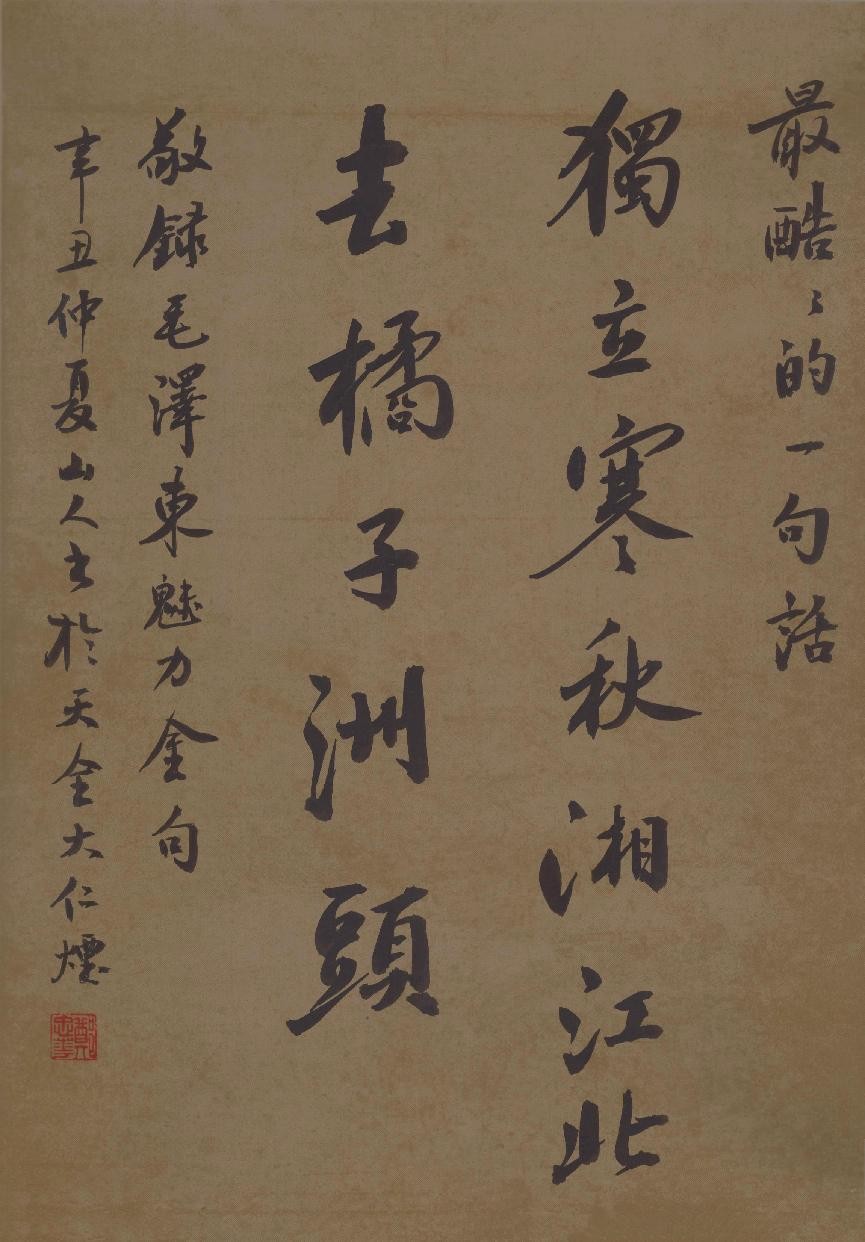 最酷々的一句話
獨立寒秋湘江北
去橘子洲頭
敬録毛澤東魅力金句
辛丑仲夏山人書於天全大仁煙
鄭忠華